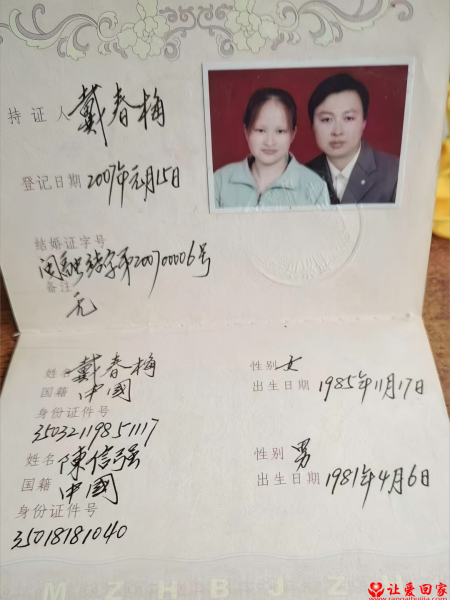 持证人 戴春梅
登记日期 2007年元月15日
结婚证字号
闽融结字第20700006号
备注
无
姓名 戴春梅 性别 女
国籍 中國 出生日期 1985年11月17日
身份证件号
35032119851117
姓名 陳信强 性别 男
国籍 中國 出生日期 1981年4月6日
身份证件号
35018181040
MZHBJZ
让爱回家